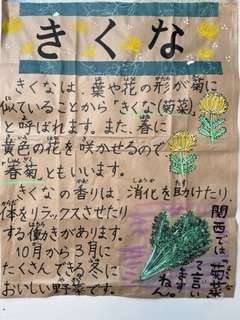 きくな
きくなは、葉や花の形が菊に
似ていることから「きくな(菊菜)」
と呼ばれます。また、春に
黄色の花を咲かせるので
春菊ともいいます。
きくなの香りは、消化を助けたり、
体をリラックスさせたり
する働きがあります。
10月から3月に
たくさんできる冬に
おいしい野菜です。
関西では「菊菜」
て言い
ますねん。